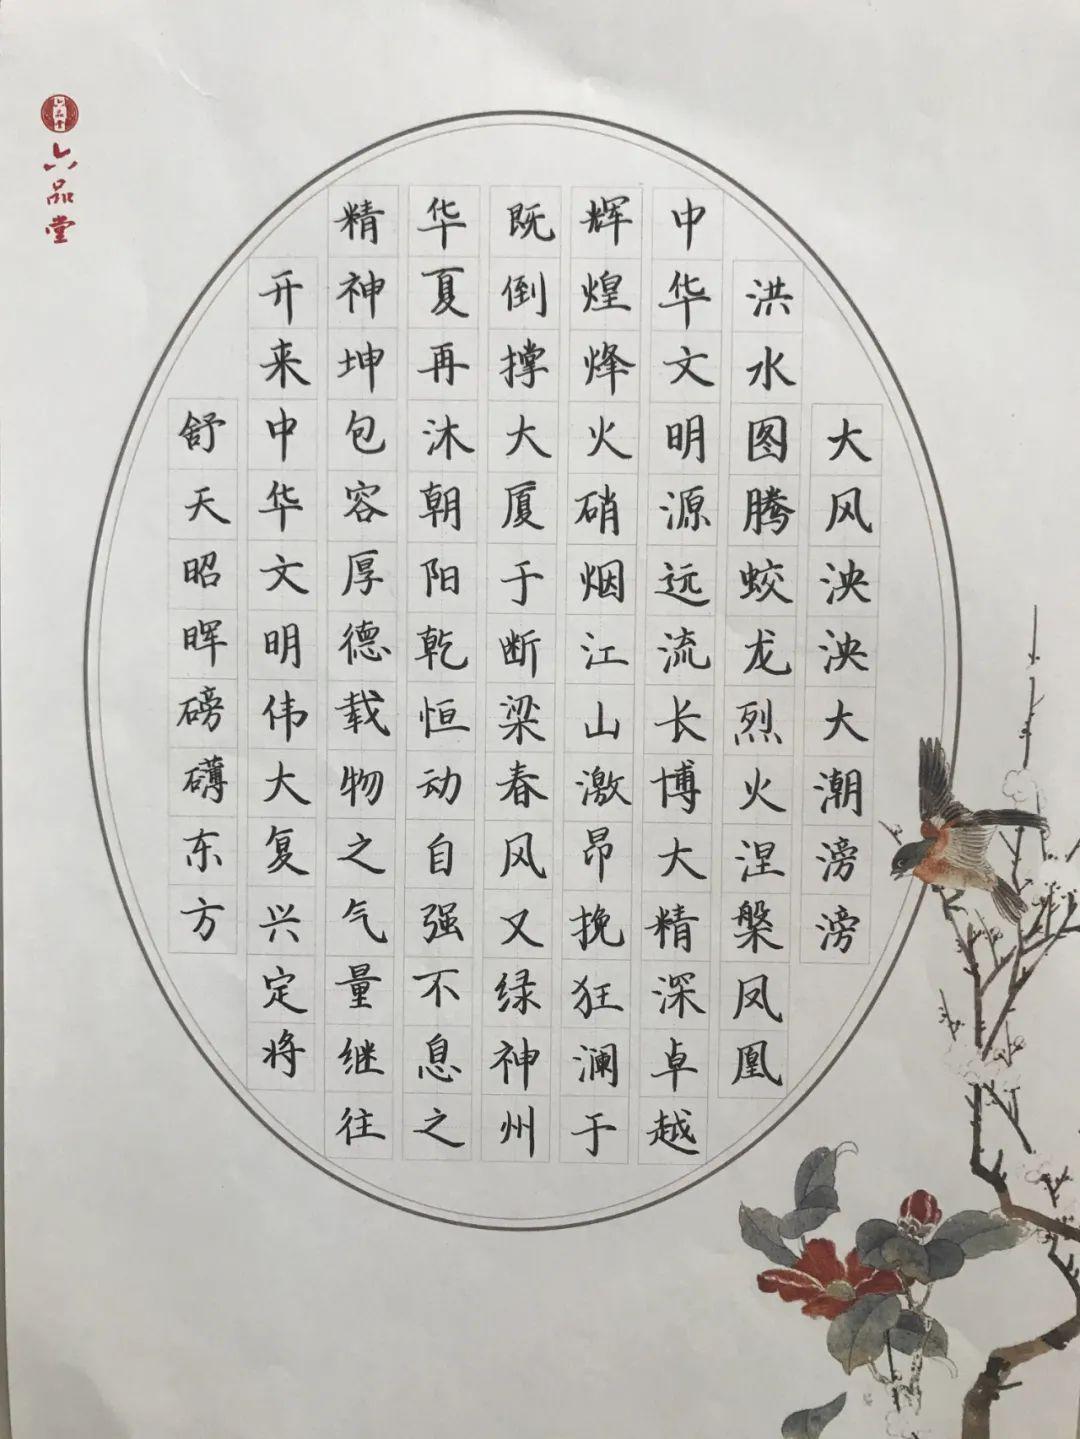 六品堂
六品堂
大风泱泱大潮滂滂
洪水图腾蛟龙烈火涅槃凤凰
中华文明源远流长博大精深卓越
辉煌烽火硝烟江山激昂挽狂澜于
既倒撑大厦于断梁春风又绿神州
华夏再沐朝阳乾恒动自强不息之
精神坤包容厚德载物之气量继往
开来中华文明伟大复兴定将
舒天昭晖磅礴东方